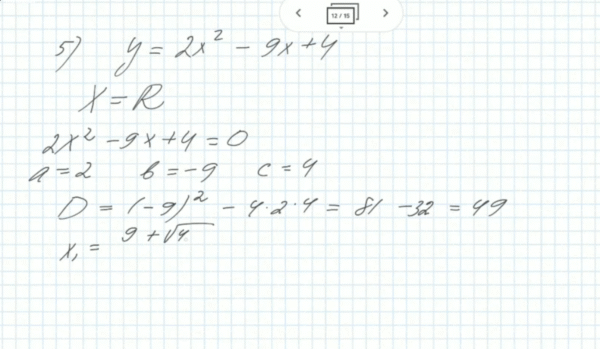 12 / 15
5) y = 2x² - 9x + 4
X = R
2x² - 9x + 4 = 0
a = 2 в = -9 c = 4
D = (-9)² - 4·2·4 = 81 - 32 = 49
x₁ = 9 + √4